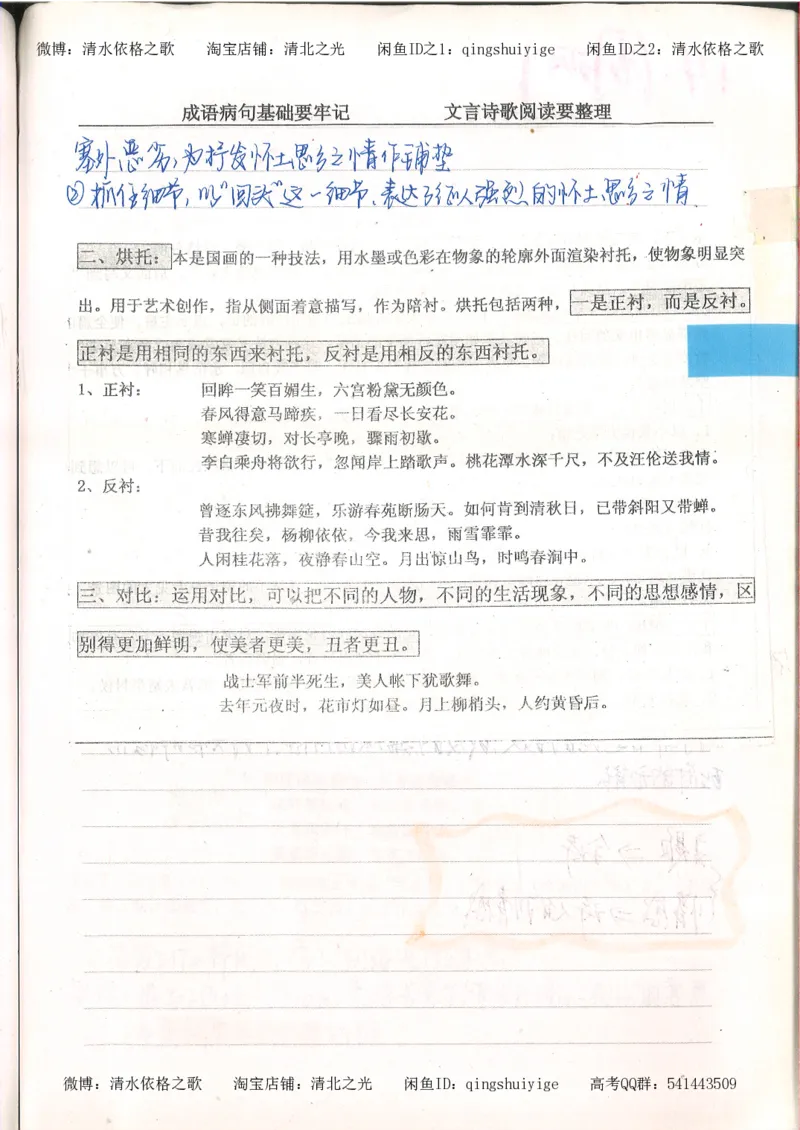 微博：清水依格之歌 淘宝店铺：清北之光 闲鱼ID之1：qingshuiyige 闲鱼ID之2：清水依格之歌
成语病句基础要牢记 文言诗歌阅读要整理
塞外恶劣，为抒发怀土思乡之情作铺垫
②抓住细节，以“回头”这一细节，表达了征人强烈的怀土思乡之情
二、烘托：本是国画的一种技法，用水墨或色彩在物象的轮廓外面渲染衬托，使物象明显突
出。用于艺术创作，指从侧面着意描写，作为陪衬。烘托包括两种，一是正衬，而是反衬。
正衬是用相同的东西来衬托，反衬是用相反的东西衬托。
1、正衬： 回眸一笑百媚生，六宫粉黛无颜色。
春风得意马蹄疾，一日看尽长安花。
寒蝉凄切，对长亭晚，骤雨初歇。
李白乘舟将欲行，忽闻岸上踏歌声。桃花潭水深千尺，不及汪伦送我情。
2、反衬：
曾逐东风拂舞筵，乐游春苑断肠天。如何肯到清秋日，已带斜阳又带蝉。
昔我往矣，杨柳依依，今我来思，雨雪霏霏。
人闲桂花落，夜静春山空。月出惊山鸟，时鸣春涧中。
三、对比：运用对比，可以把不同的人物，不同的生活现象，不同的思想感情，区
别得更加鲜明，使美者更美，丑者更丑。
战士军前半死生，美人帐下犹歌舞。
去年元夜时，花市灯如昼。月上柳梢头，人约黄昏后。
微博：清水依格之歌 淘宝店铺：清北之光 闲鱼ID：qingshuiyige 高考QQ群：541443509